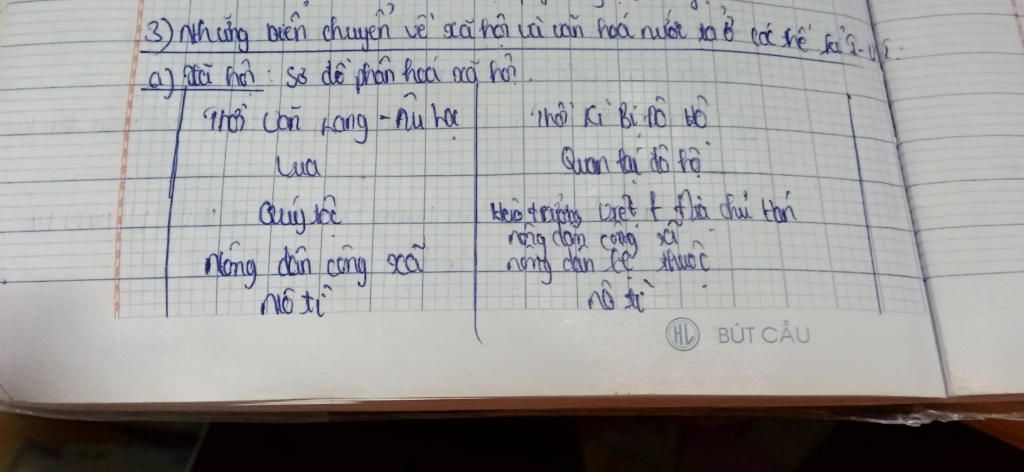 3) Những biến chuyển về xã hội và văn hoá nước ta ở các thế kỉ I-VI.
a) Xã hội: sơ đồ phân hoá xã hội.
Thời Văn Lang - Âu Lạc
Thời Kì Bị Đô Hộ
Vua
Quan lại đô hộ
Quý tộc
Hào trưởng Việt + Địa chủ Hán
nông dân công xã
Nông dân công xã
nông dân lệ thuộc
Nô tì
nô tì
HL BÚT CẦU